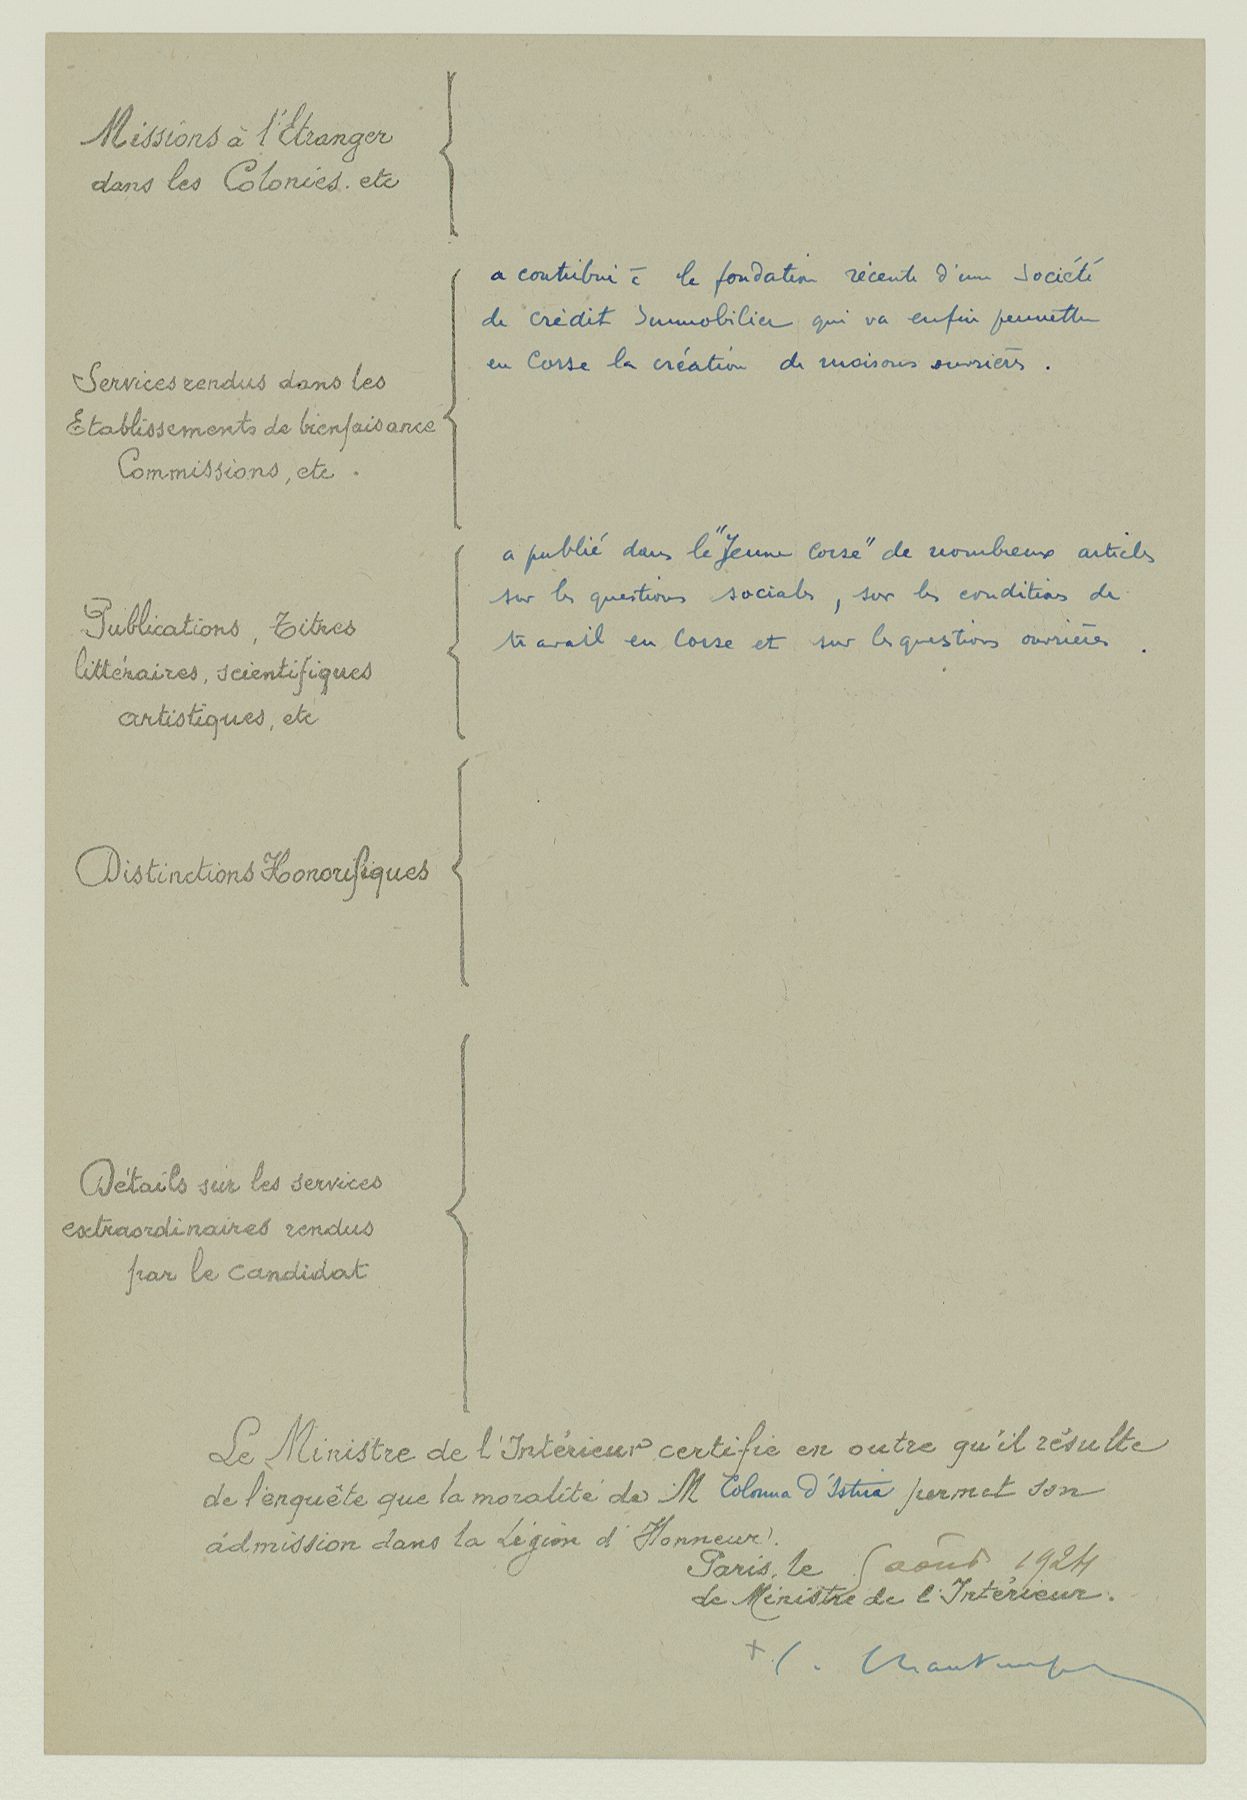 Missions à l'Etranger
dans les Colonies. etc
a contribué à la fondation récente d'une Société
de crédit Immobilier qui va enfin permettre
en Corse la création de maisons ouvrières.
Services rendus dans les
Etablissements de bienfaisance
Commissions, etc.
a publié dans le "Jeune Corse" de nombreux articles
sur les questions sociales, sur les conditions de
travail en Corse et sur les questions ouvrières.
Publications, Titres
littéraires, scientifiques
artistiques, etc
Distinctions Honorifiques
Détails sur les services
extraordinaires rendus
par le candidat
Le Ministre de l'Intérieur certifie en outre qu'il résulte
de l'enquête que la moralité de M Colonna d'Istria permet son
admission dans la Légion d'Honneur.
Paris, le 5 août 1924
Le Ministre de l'Intérieur.
C. Chautemps